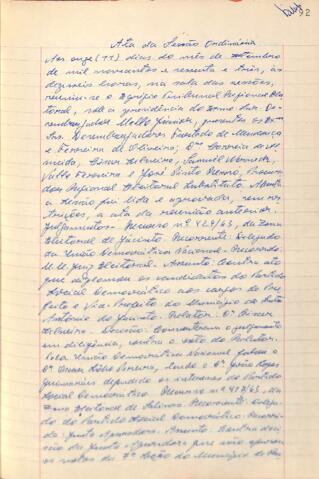 92
Ata da Sessão Ordinária
Aos onze (11) dias do mês de setembro
de mil novecentos e sessenta e três, às
dezesseis horas, na sala das sessões,
reuniu-se o Egrégio Tribunal Regional Elei-
toral, sob a presidência do Exmo. Snr. De-
sembargador Mello Júnior, presentes os Exmos.
Srs. Desembargadores Furtado de Mendonça
e Ferreira de Oliveira; Drs. Correia de Al-
meida,
e José Pinto Renó, Procura-
dor Regional Eleitoral Substituto. Aberta
a sessão foi lida e aprovada, sem res-
trições, a ata da reunião anterior.
Julgamentos: Recurso nº 429/63, da Zona
Eleitoral de Jacinto. Recorrente: Delegado
da União Democrática Nacional. Recorrido:
M.M. Juiz Eleitoral. Assunto: Contra ato
que diplomou os candidatos do Partido
Social Democrático aos cargos de Pre-
feito e Vice-Prefeito do Município de Santo
Antônio do Jacinto. Relator: Dr.
Decisão: Converteram o julgamento
em diligência, contra o voto do Relator.
Pela União Democrática Nacional falou o
Dr. Oscar Dias Corrêa, tendo o Dr. João Lopes
Guimarães defendido os interesses do Partido
Social Democrático. Recurso nº
Zona Eleitoral de Salinas. Recorrente: Delega-
do do Partido Social Democrático. Recorri-
da: Junta Apuradora. Assunto: Contra deci-
são da Junta Apuradora que não apurou
os votos da 7ª Seção do Município de